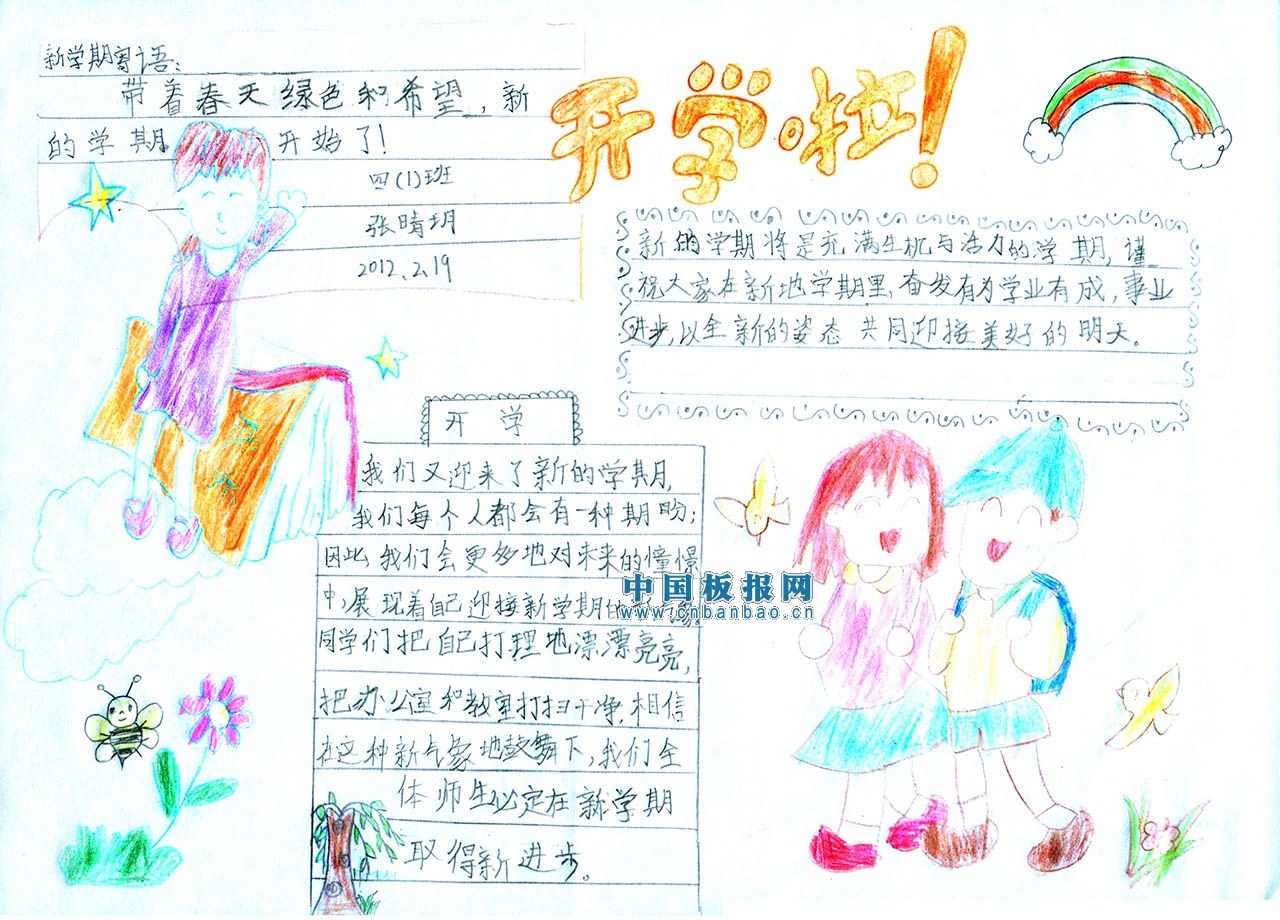 新学期寄语：
带着春天绿色和希望，新
的学期 开始了！
四(1)班
张晴玥
2012.2.19
开学啦！
新的学期将是充满生机与活力的学期，谨
祝大家在新地学期里，奋发有为学业有成，事业
进步，以全新的姿态 共同迎接美好的明天。
开学
我们又迎来了新的学期，
我们每个人都会有一种期盼；
因此我们会更多地对未来的憧憬
中，展现着自己迎接新学期的
同学们把自己打理地漂漂亮亮，
把办公室和教室打扫干净，相信
在这种新气象地鼓舞下，我们全
体师生必定在新学期
取得新进步。
中国板报网
www.cnbanbao.cn